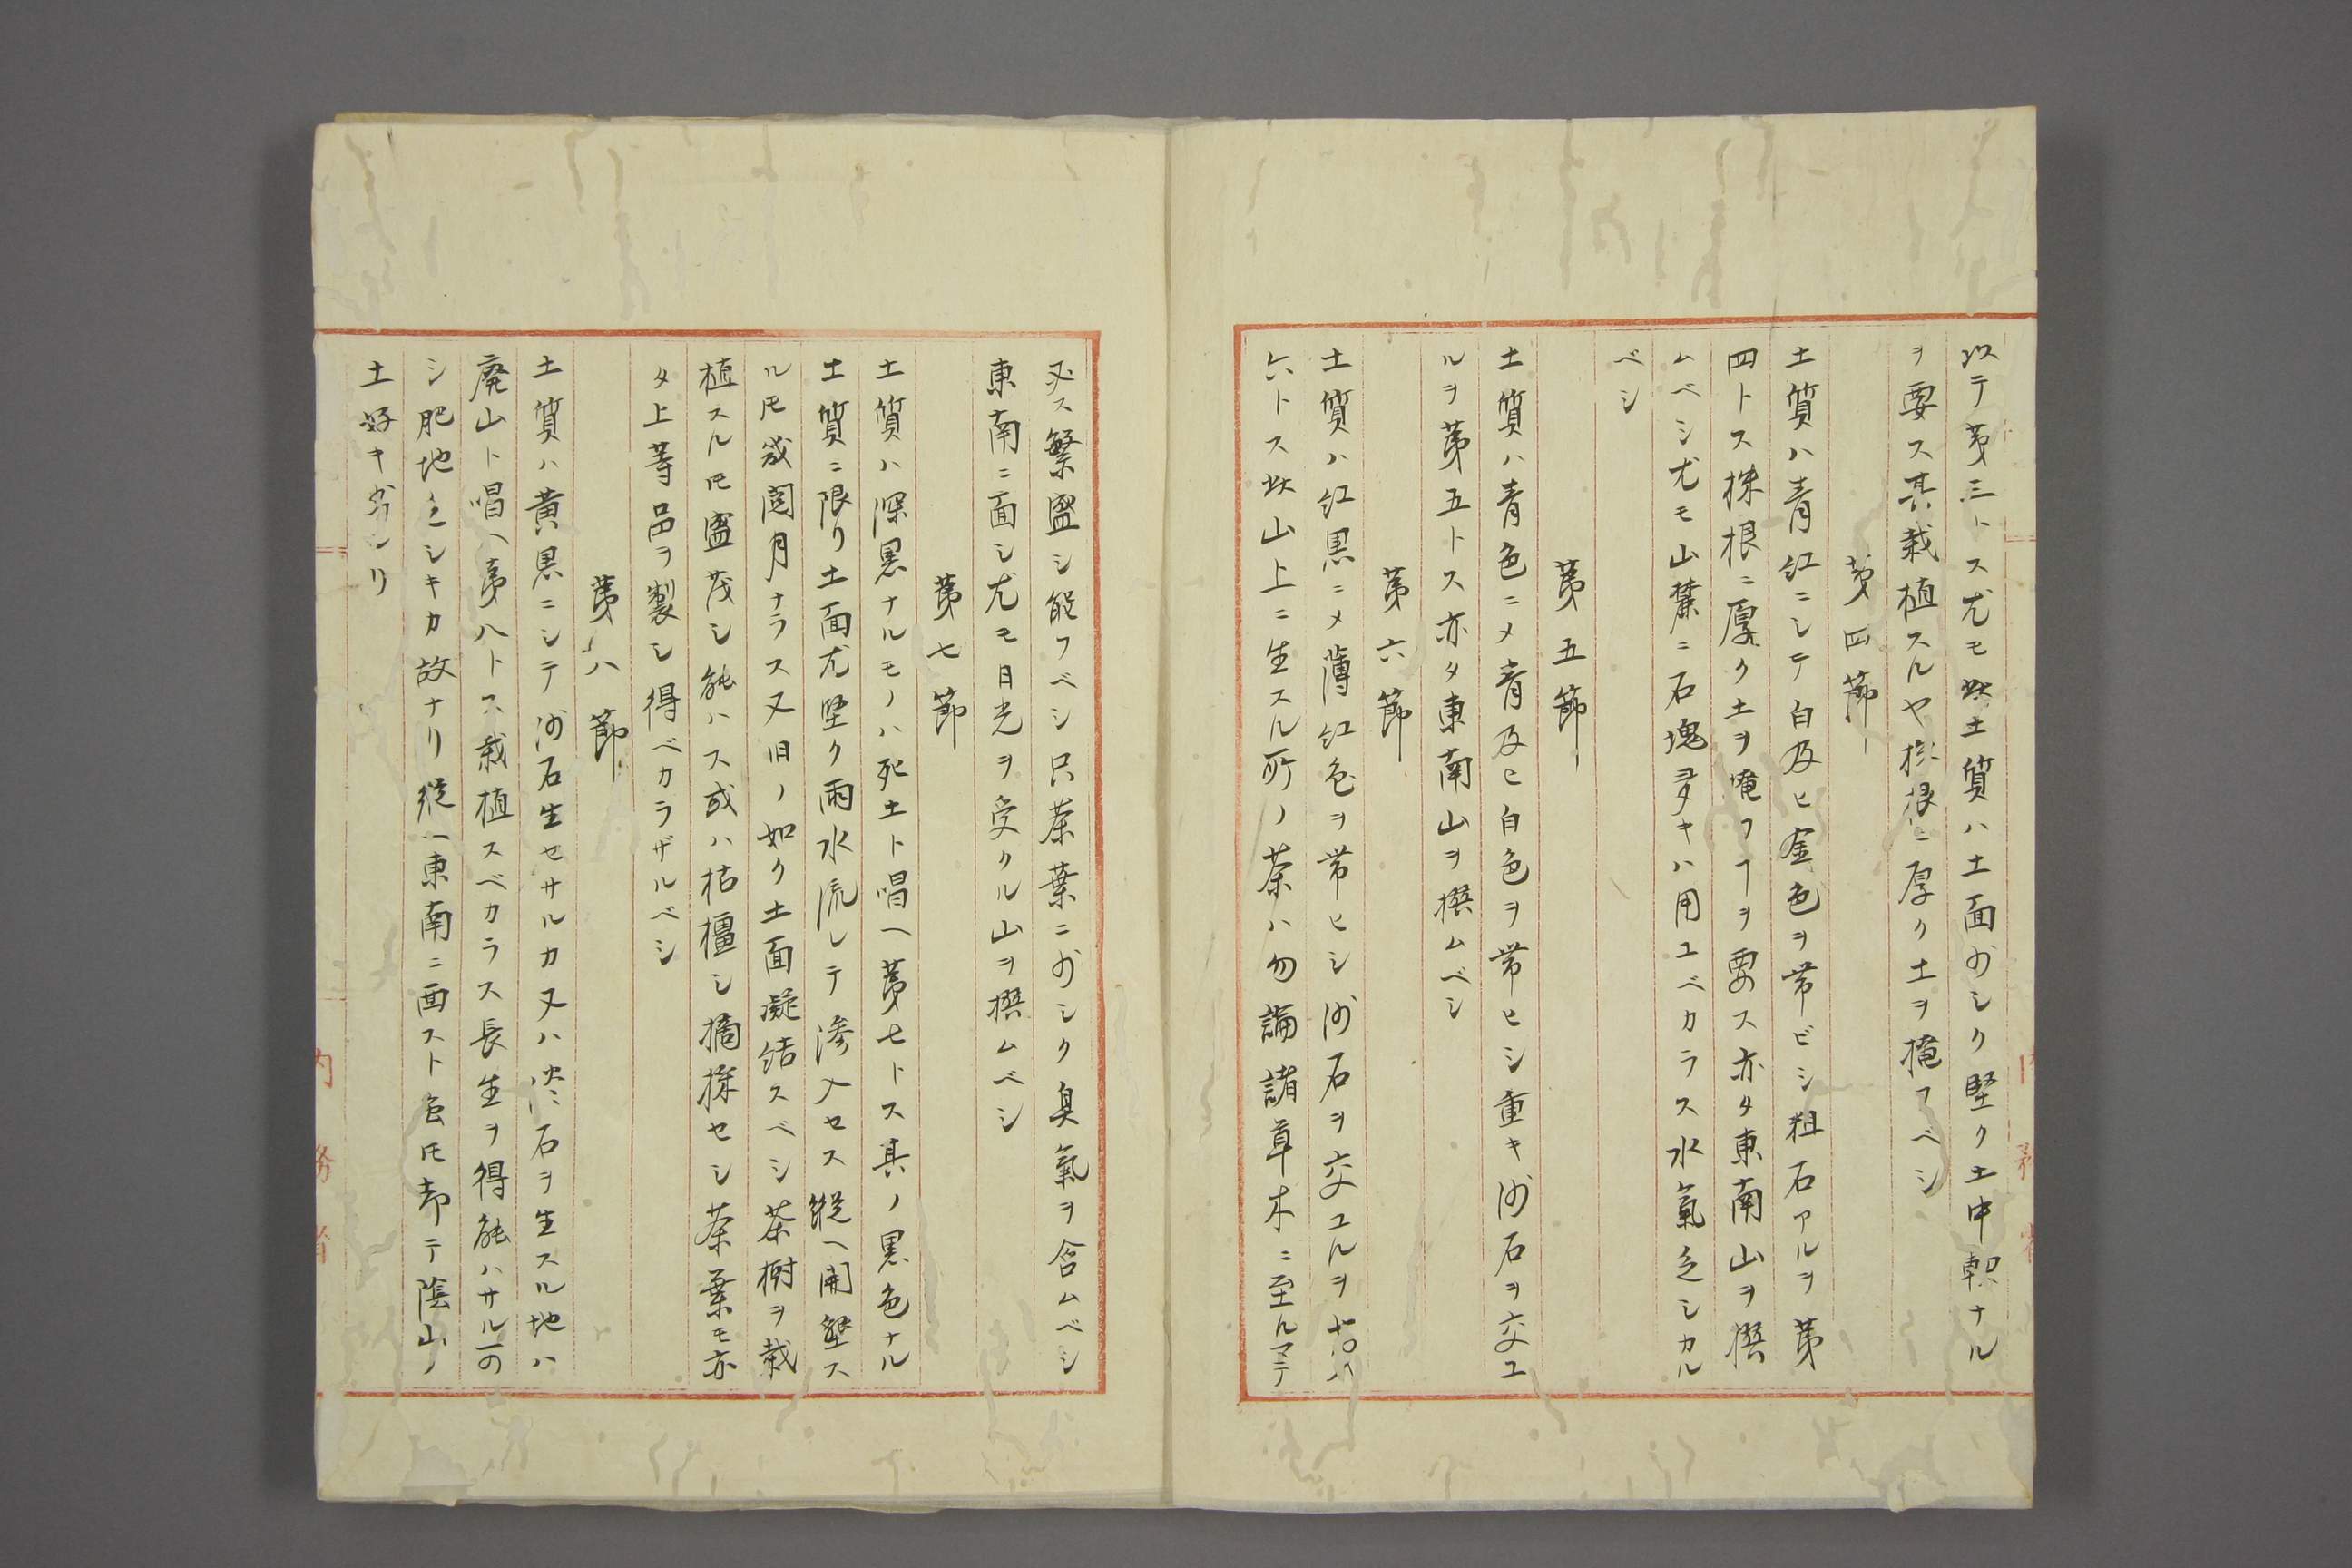 以テ第三トス尤モ此土質ハ土面少シク堅ク土中軟ナル
ヲ要ス其栽植スルヤ株根ニ厚ク土ヲ掩フベシ
第四節
土質ハ青紅ニシテ白及ヒ金色ヲ帯ビシ粗石アルヲ第
四トス株根ニ厚ク土ヲ掩フヿヲ要ス亦タ東南山ヲ撰
ムベシ尤モ山麓ニ石塊多キハ用ユベカラス水氣乏シカル
ベシ
第五節
土質ハ青色ニメ青及ヒ白色ヲ帯ヒシ重キ沙石ヲ交ユ
ルヲ第五トス亦タ東南山ヲ撰ムベシ
第六節
土質ハ紅黒ニメ薄紅色ヲ帯ヒシ沙石ヲ交ユルヲ
六トス此山上ニ生スル所ノ茶ハ勿論諸草木ニ至ルマテ
必ス繁盛シ能フベシ只茶葉ニ少シク臭氣ヲ含ムベシ
東南ニ面シ尤モ日光ヲ受クル山ヲ撰ムベシ
第七節
土質ハ深黒ナルモノハ死土ト唱ヘ第七トス其ノ黒色ナル
土質ニ限リ土面尤堅ク雨水流レテ滲入セス縦ヘ開墾ス
ルモ歳閲月ナラス又旧ノ如ク土面凝結スベシ茶樹ヲ栽
植スルモ盛茂シ能ハス或ハ枯橿シ摘採セシ茶葉モ亦
タ上等品ヲ製シ得ベカラザルベシ
第八節
土質ハ黄黒ニシテ沙石生セサルカ又ハ石ヲ生スル地ハ
廃山ト唱ヘ第八トス栽植スベカラス長生ヲ得能ハサル而の
シ肥地乏シキカ故ナリ縦ヘ東南ニ面スト色モ却テ陰山ノ
土好キ
内務省